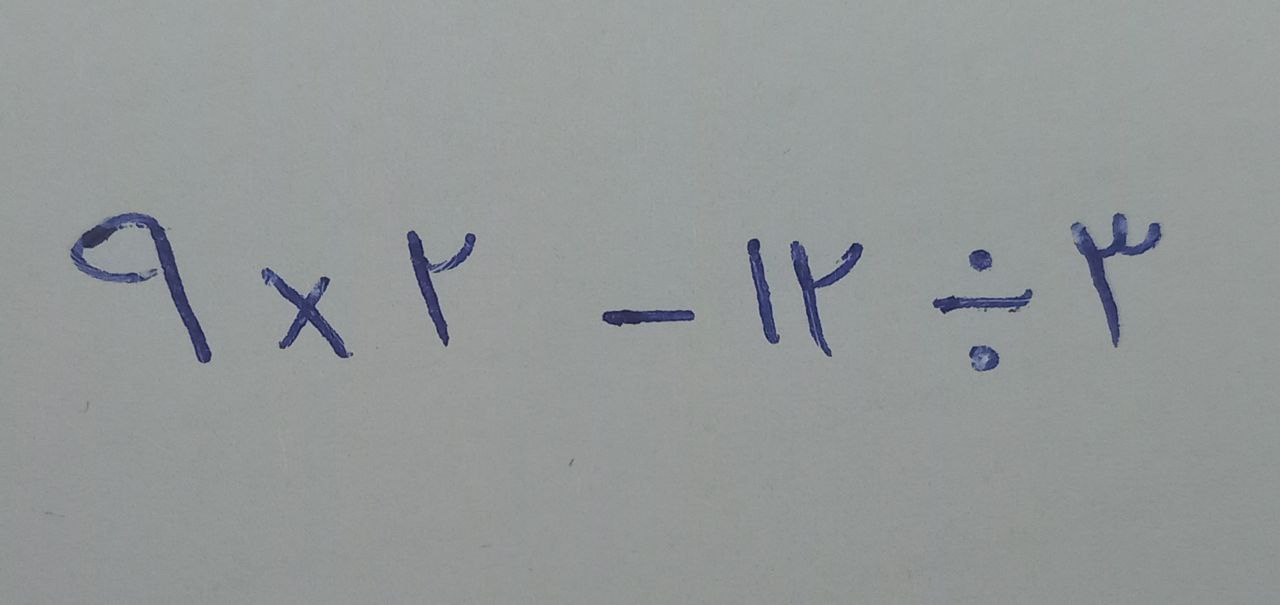 ۹ × ۲ - ۱۲ ÷ ۳